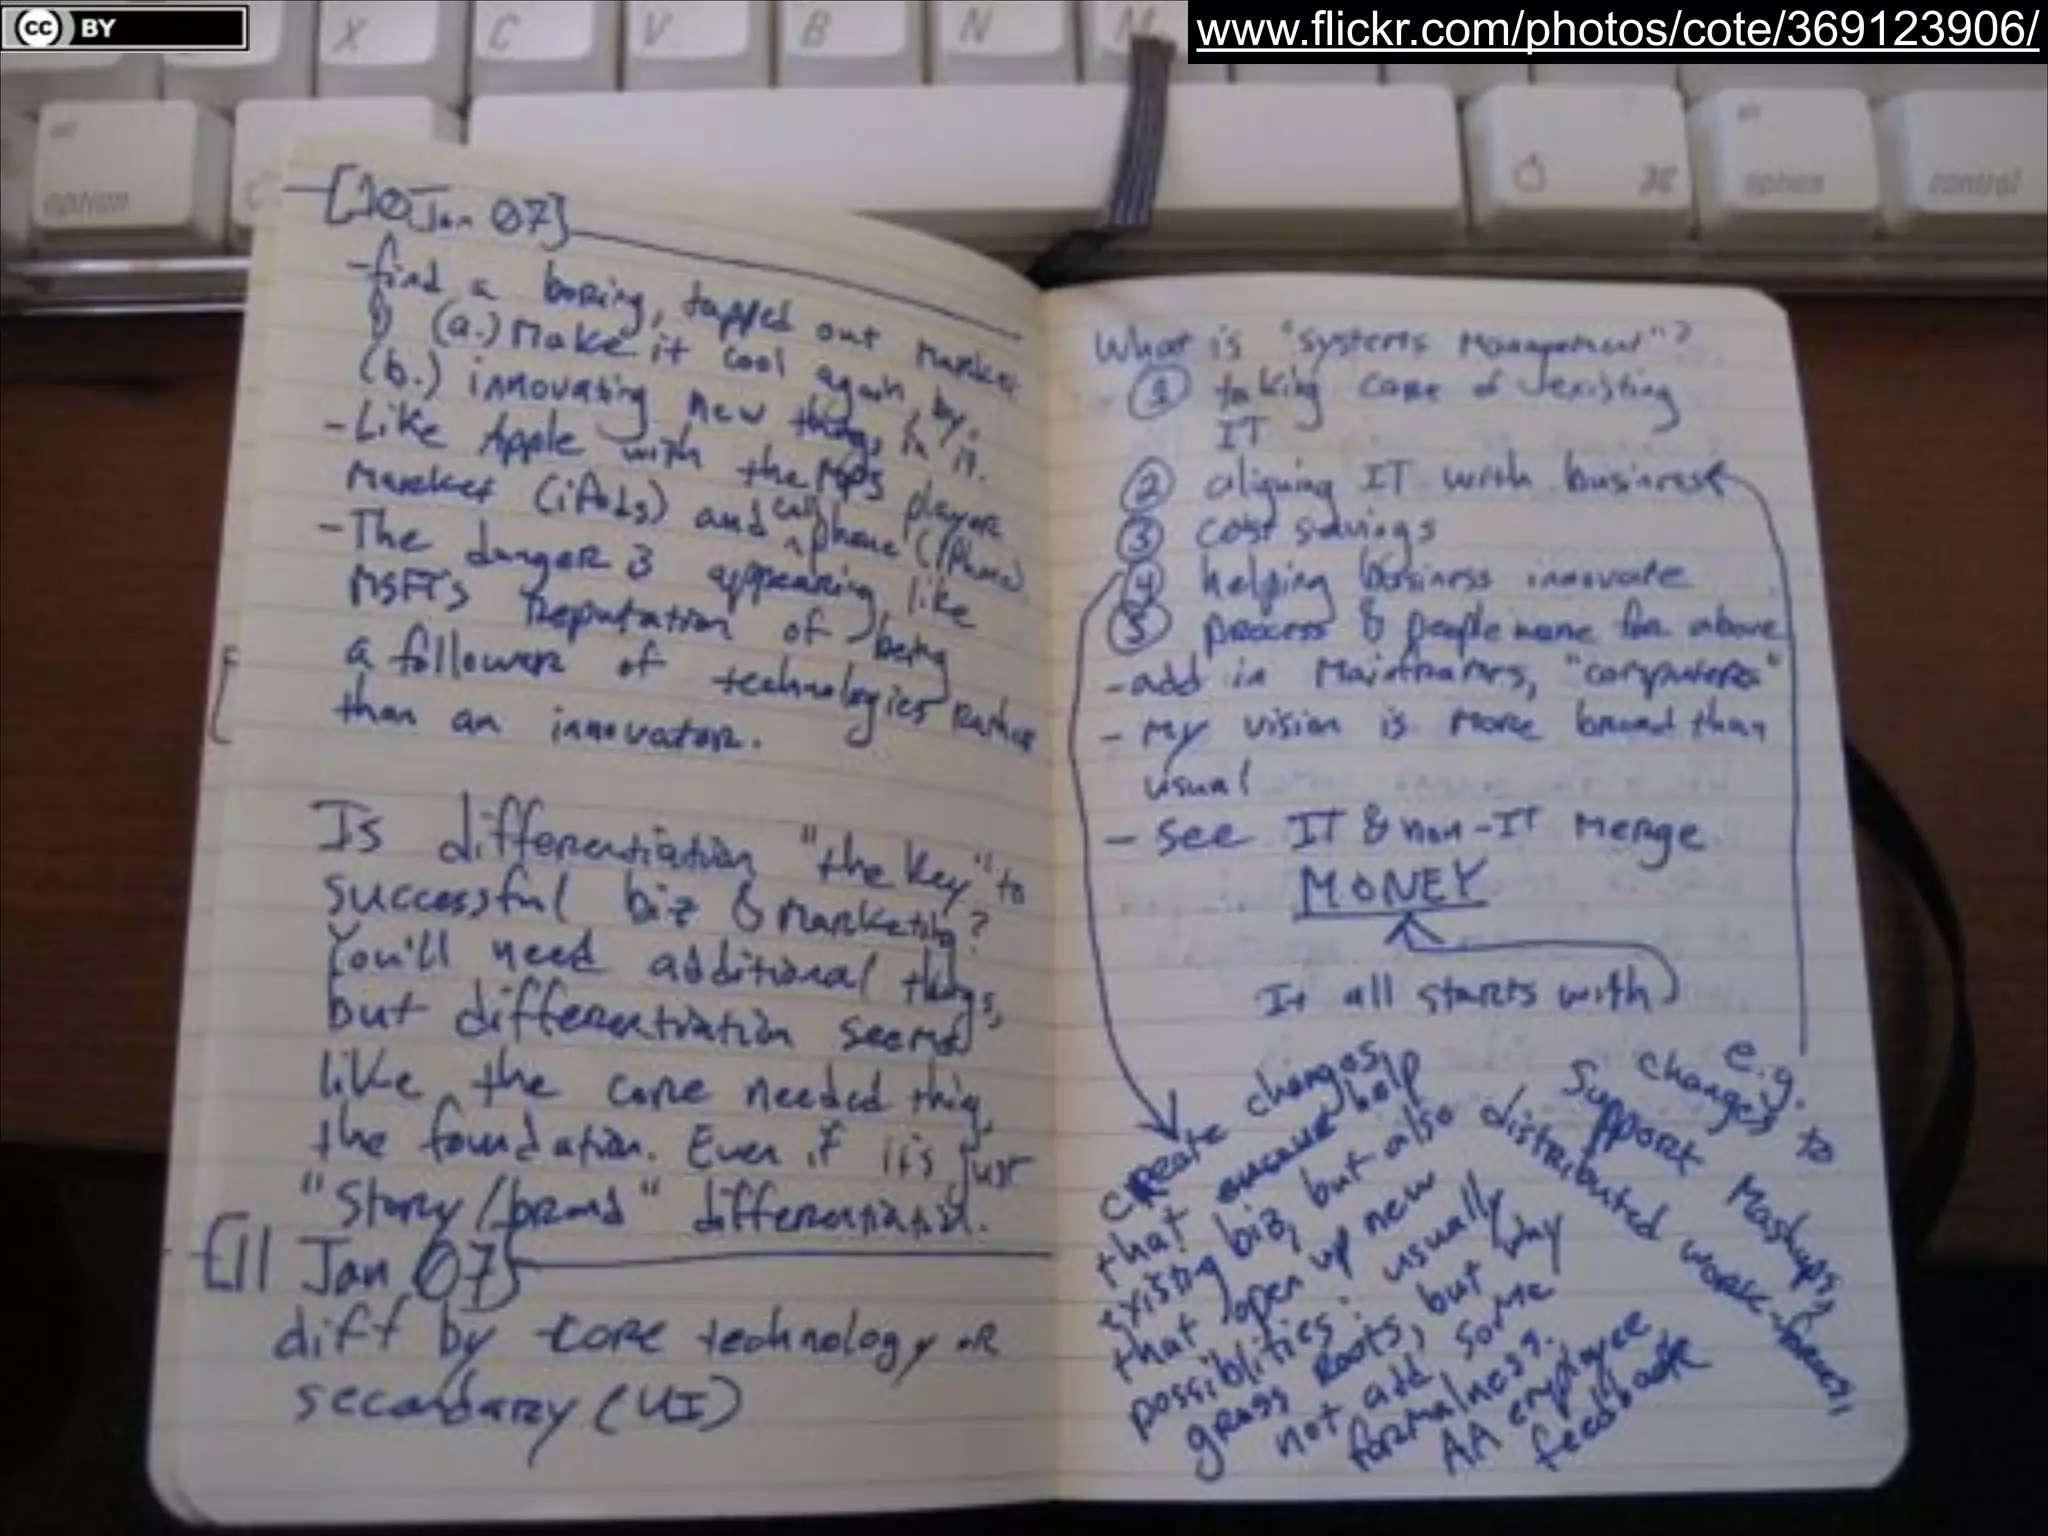 CC BY
www.flickr.com/photos/cote/369123906/
X C V B N M
alt option
alt option
control
[10 Jan 07]
- find a boring, tapped out market
& (a.) Make it cool again by,
(b.) innovating new things in it.
- Like Apple with the MP3 player
market (iPods) and cell phone (iPhone)
- The danger is appearing, like
MSFT's reputation of being
a follower of technologies rather
than an innovator.
Is differentiation "the key" to
successful biz & marketing?
You'll need additional things,
but differentiation seems
like the core needed thing,
the foundation. Even if it's just
"story/brand" differentiation.
[11 Jan 07]
diff by core technology or
secondary (UI)
What is "systems management"?
① taking care of existing
IT
② aligning IT with business
③ cost savings
④ helping business innovate
⑤ process & people name for above
- add in Mainframes, "computers"
- My vision is more broad than
usual
- see IT & non-IT merge
MONEY
It all starts with
create changes
that help
existing biz, but also
that open up new
possiblities: usually
grass roots, but why
not add some
formalness.
AA employee
feedback
e.g.
changes to
support Mashups,
distributed work-forces